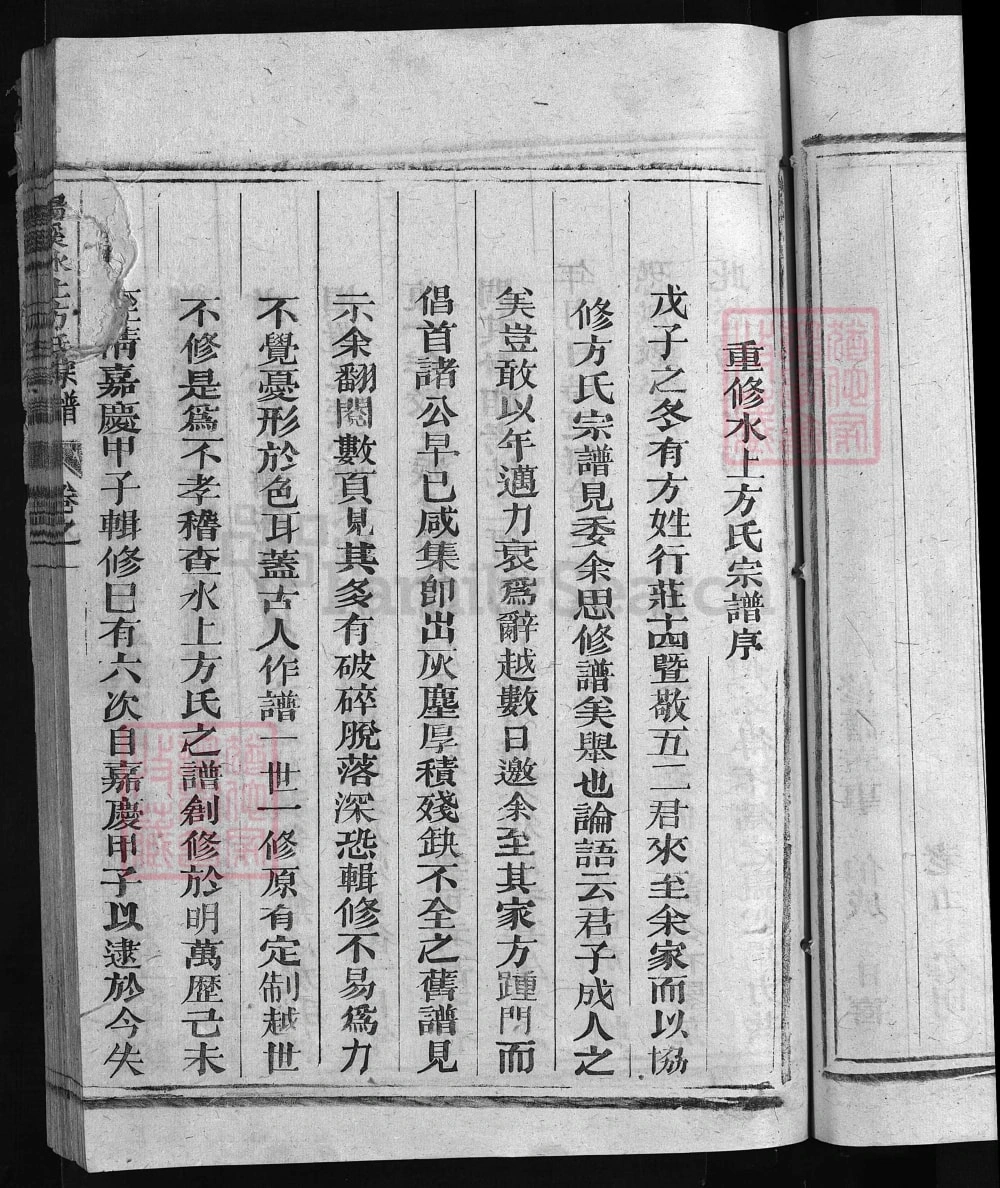 重修水上方氏宗譜序
戊子之冬有方姓行莊十四暨敬五二君來至余家而以協
修方氏宗譜見委余思修譜美舉也論語云君子成人之
美豈敢以年邁力衰爲辭越數日邀余至其家方踵門而
倡首諸公早已咸集卽出灰塵厚積殘缺不全之舊譜見
示余翻閱數頁見其多有破碎脫落深恐輯修不易爲力
不覺憂形於色耳蓋古人作譜一世一修原有定制越世
不修是爲不孝稽查水上方氏之譜創修於明萬歷己未
清嘉慶甲子輯修巳有六次自嘉慶甲子以逮於今失
水上方氏宗譜 卷之一
FamilySearch